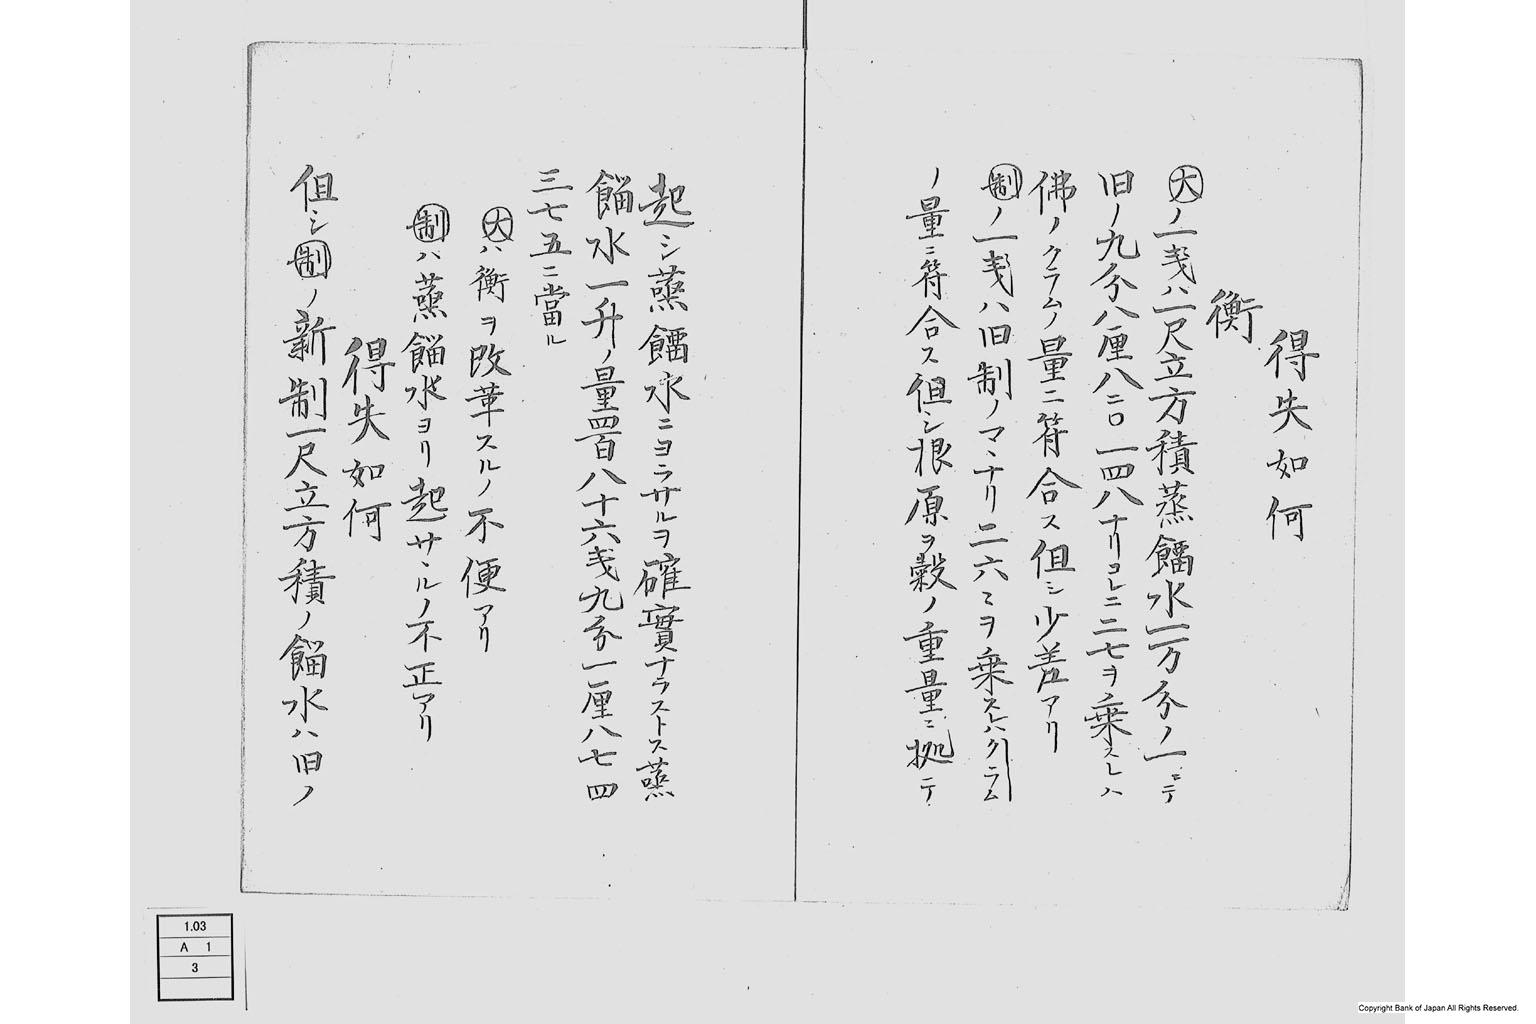 得失如何
衡
大ノ一戔ハ一尺立方積蒸餾水一万分ノ一ニテ
旧ノ九分八厘八二〇一四八ナリコレニ二七ヲ乗スレハ
佛ノクラムノ量ニ符合ス但シ少差アリ
制ノ一戔ハ旧制ノマヽナリ二六ミヲ乗スレハクラム
ノ量ニ符合ス但シ根原ヲ穀ノ重量ニ拠テ
起シ蒸餾水ニヨラサルヲ確實ナラストス蒸
餾水一升ノ量四百八十六戔九分一厘八七四
三七五ニ當ル
大ハ衡ヲ改革スルノ不便アリ
制ハ蒸餾水ヨリ起サヽルノ不正アリ
得失如何
但シ制ノ新制一尺立方積ノ餾水ハ旧ノ
1.03
A 1
3
Copyright Bank of Japan All Rights Reserved.